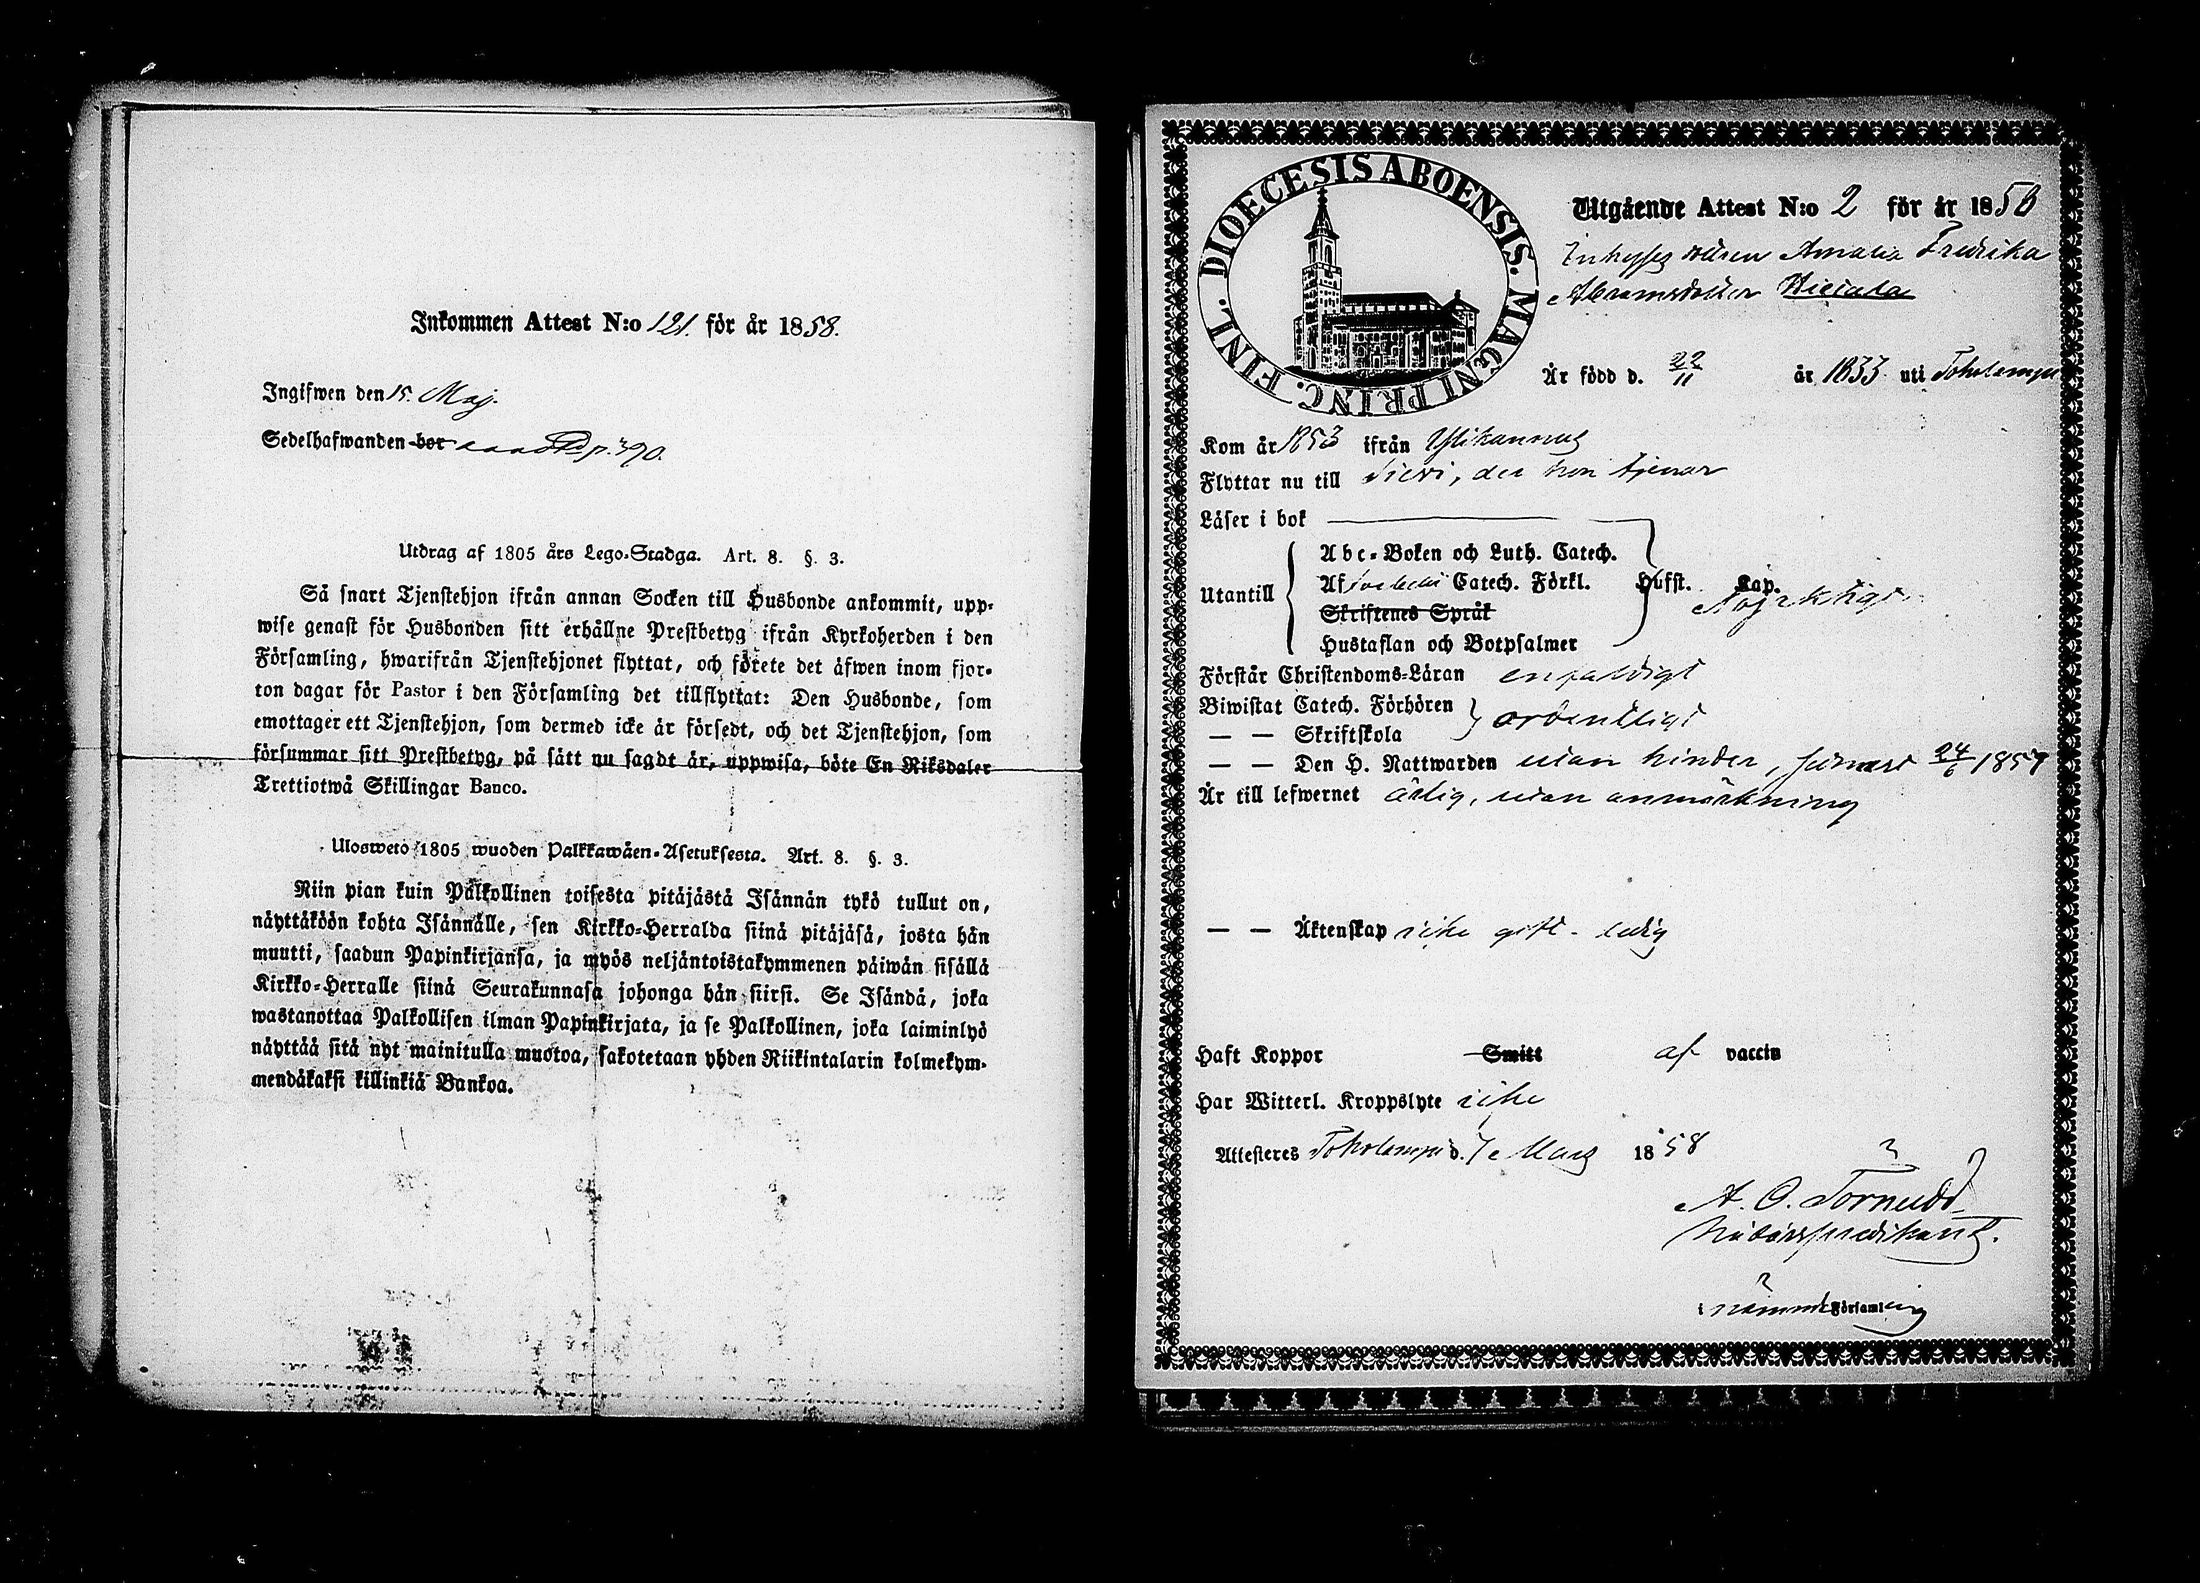 Inkommen Attest N:o 121. för år 1858.
Ingifwen den 15. Maj.
Sedelhafwanden bor p. 390.
Utdrag af 1805 års Lego-Stadga. Art. 8. §. 3.
Så snart Tjenstehjon ifrån annan Socken till Husbonde ankommit, upp-
wise genast för Husbonden sitt erhållne Prestbetyg ifrån Kyrkoherden i den
Församling, hwarifrån Tjenstehjonet flyttat, och förete det äfwen inom fjor-
ton dagar för Pastor i den Församling det tillflyttat: Den Husbonde, som
emottager ett Tjenstehjon, som dermed icke är försedt, och det Tjenstehjon, som
försummar sitt Prestbetyg, på sätt nu sagdt är, uppwisa, böte En Riksdaler
Trettiotwå Skillingar Banco.
Ulosweto 1805 wuoden Palkkawäen-Asetuksesta. Art. 8. §. 3.
Niin pian kuin Palkollinen toisesta pitäjästä Isännän tykö tullut on,
näyttäköön kohta Isännälle, sen Kirkko-Herralda siinä pitäjäsä, josta hän
muutti, saadun Papinkirjansa, ja myös neljäntoistakymmenen päiwän sisällä
Kirkko-Herralle siinä Seurakunnasa johonga hän siirsi. Se Isändä, joka
wastanottaa Palkollisen ilman Papinkirjata, ja se Palkollinen, joka laiminlyö
näyttää sitä nyt mainitulla muotoa, sakotetaan yhden Riikintalarin kolmekym-
mendäkaksi killinkiä Bankoa.
DIOECESIS ABOENSIS. MAGNI PRINC. FINL.
Utgående Attest N:o 2 för år 1858
Amalia Fredrika
Abramsdotter
Är född d. 22/11 år 1833 uti Toholampi
Kom år 1853 ifrån Ylikannus
Flyttar nu till Sievi, der hon tjenar
Läser i bok
Utantill
Abc-Boken och Luth. Catech.
Af Svebelii Catech. Förkl. Husst. Kap.
Skriftenes Språk
Nöjaktigt
Hustaflan och Botpsalmer
Förstår Christendoms-Läran enfaldigt
Biwistat Catech. Förhören ordentligt
— — Skriftskola
— — Den H. Nattwarden utan hinder, senast 24/6 1857
Är till lefwernet ärlig, utan anmärkning
— — Äktenskap icke gift - ledig
Haft Koppor Smitt af vaccin
Har Witterl. Kroppslyte icke
Attesteras Toholampi d. 7 Mars 1858
A. O. Törnudd
Nådårspredikant.
nämnde Församling